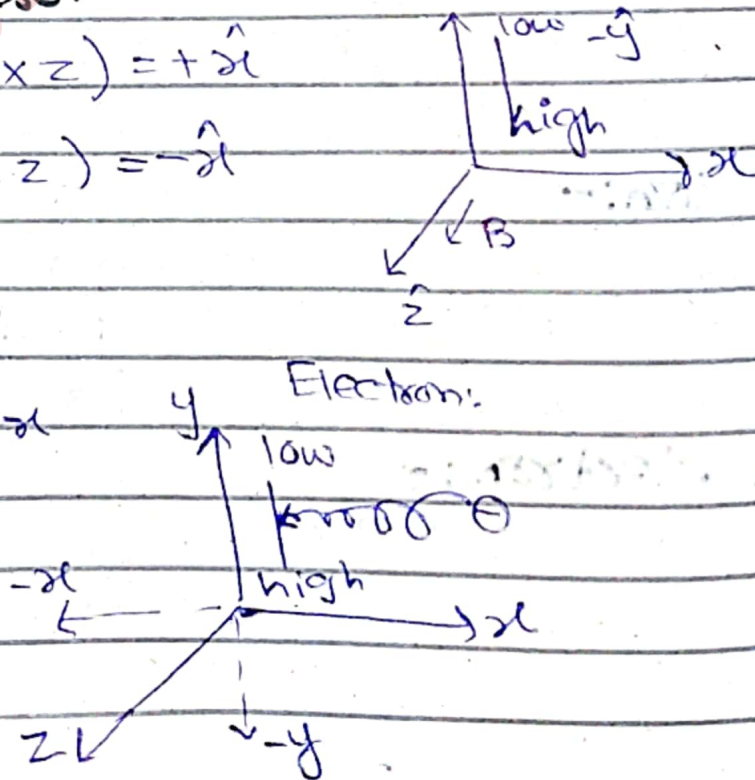 xz) = +x̂
low -ŷ
high
z) = -x̂
x
B
ẑ
Electron:
-x
y
low
⊖
high
-x
x
z
-y